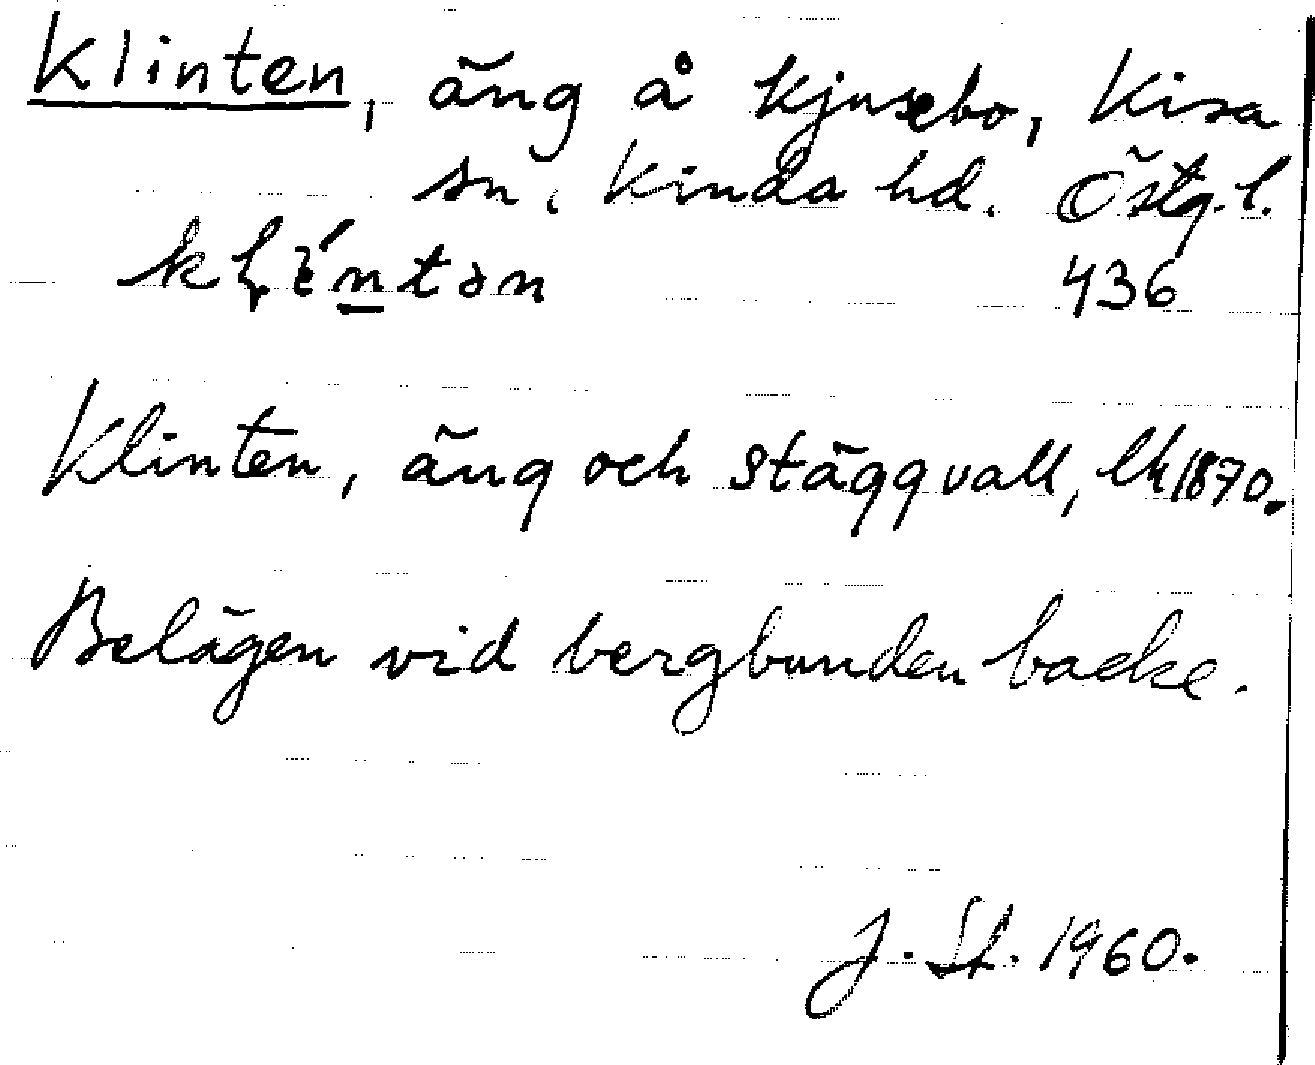 Klinten, äng å Kjusebo, Kisa
sn. Kinda hd. Östg. l.
436
Klinten, äng och stäggvall, lk 1870.
Belägen vid bergbunden backe.
J. St. 1960.